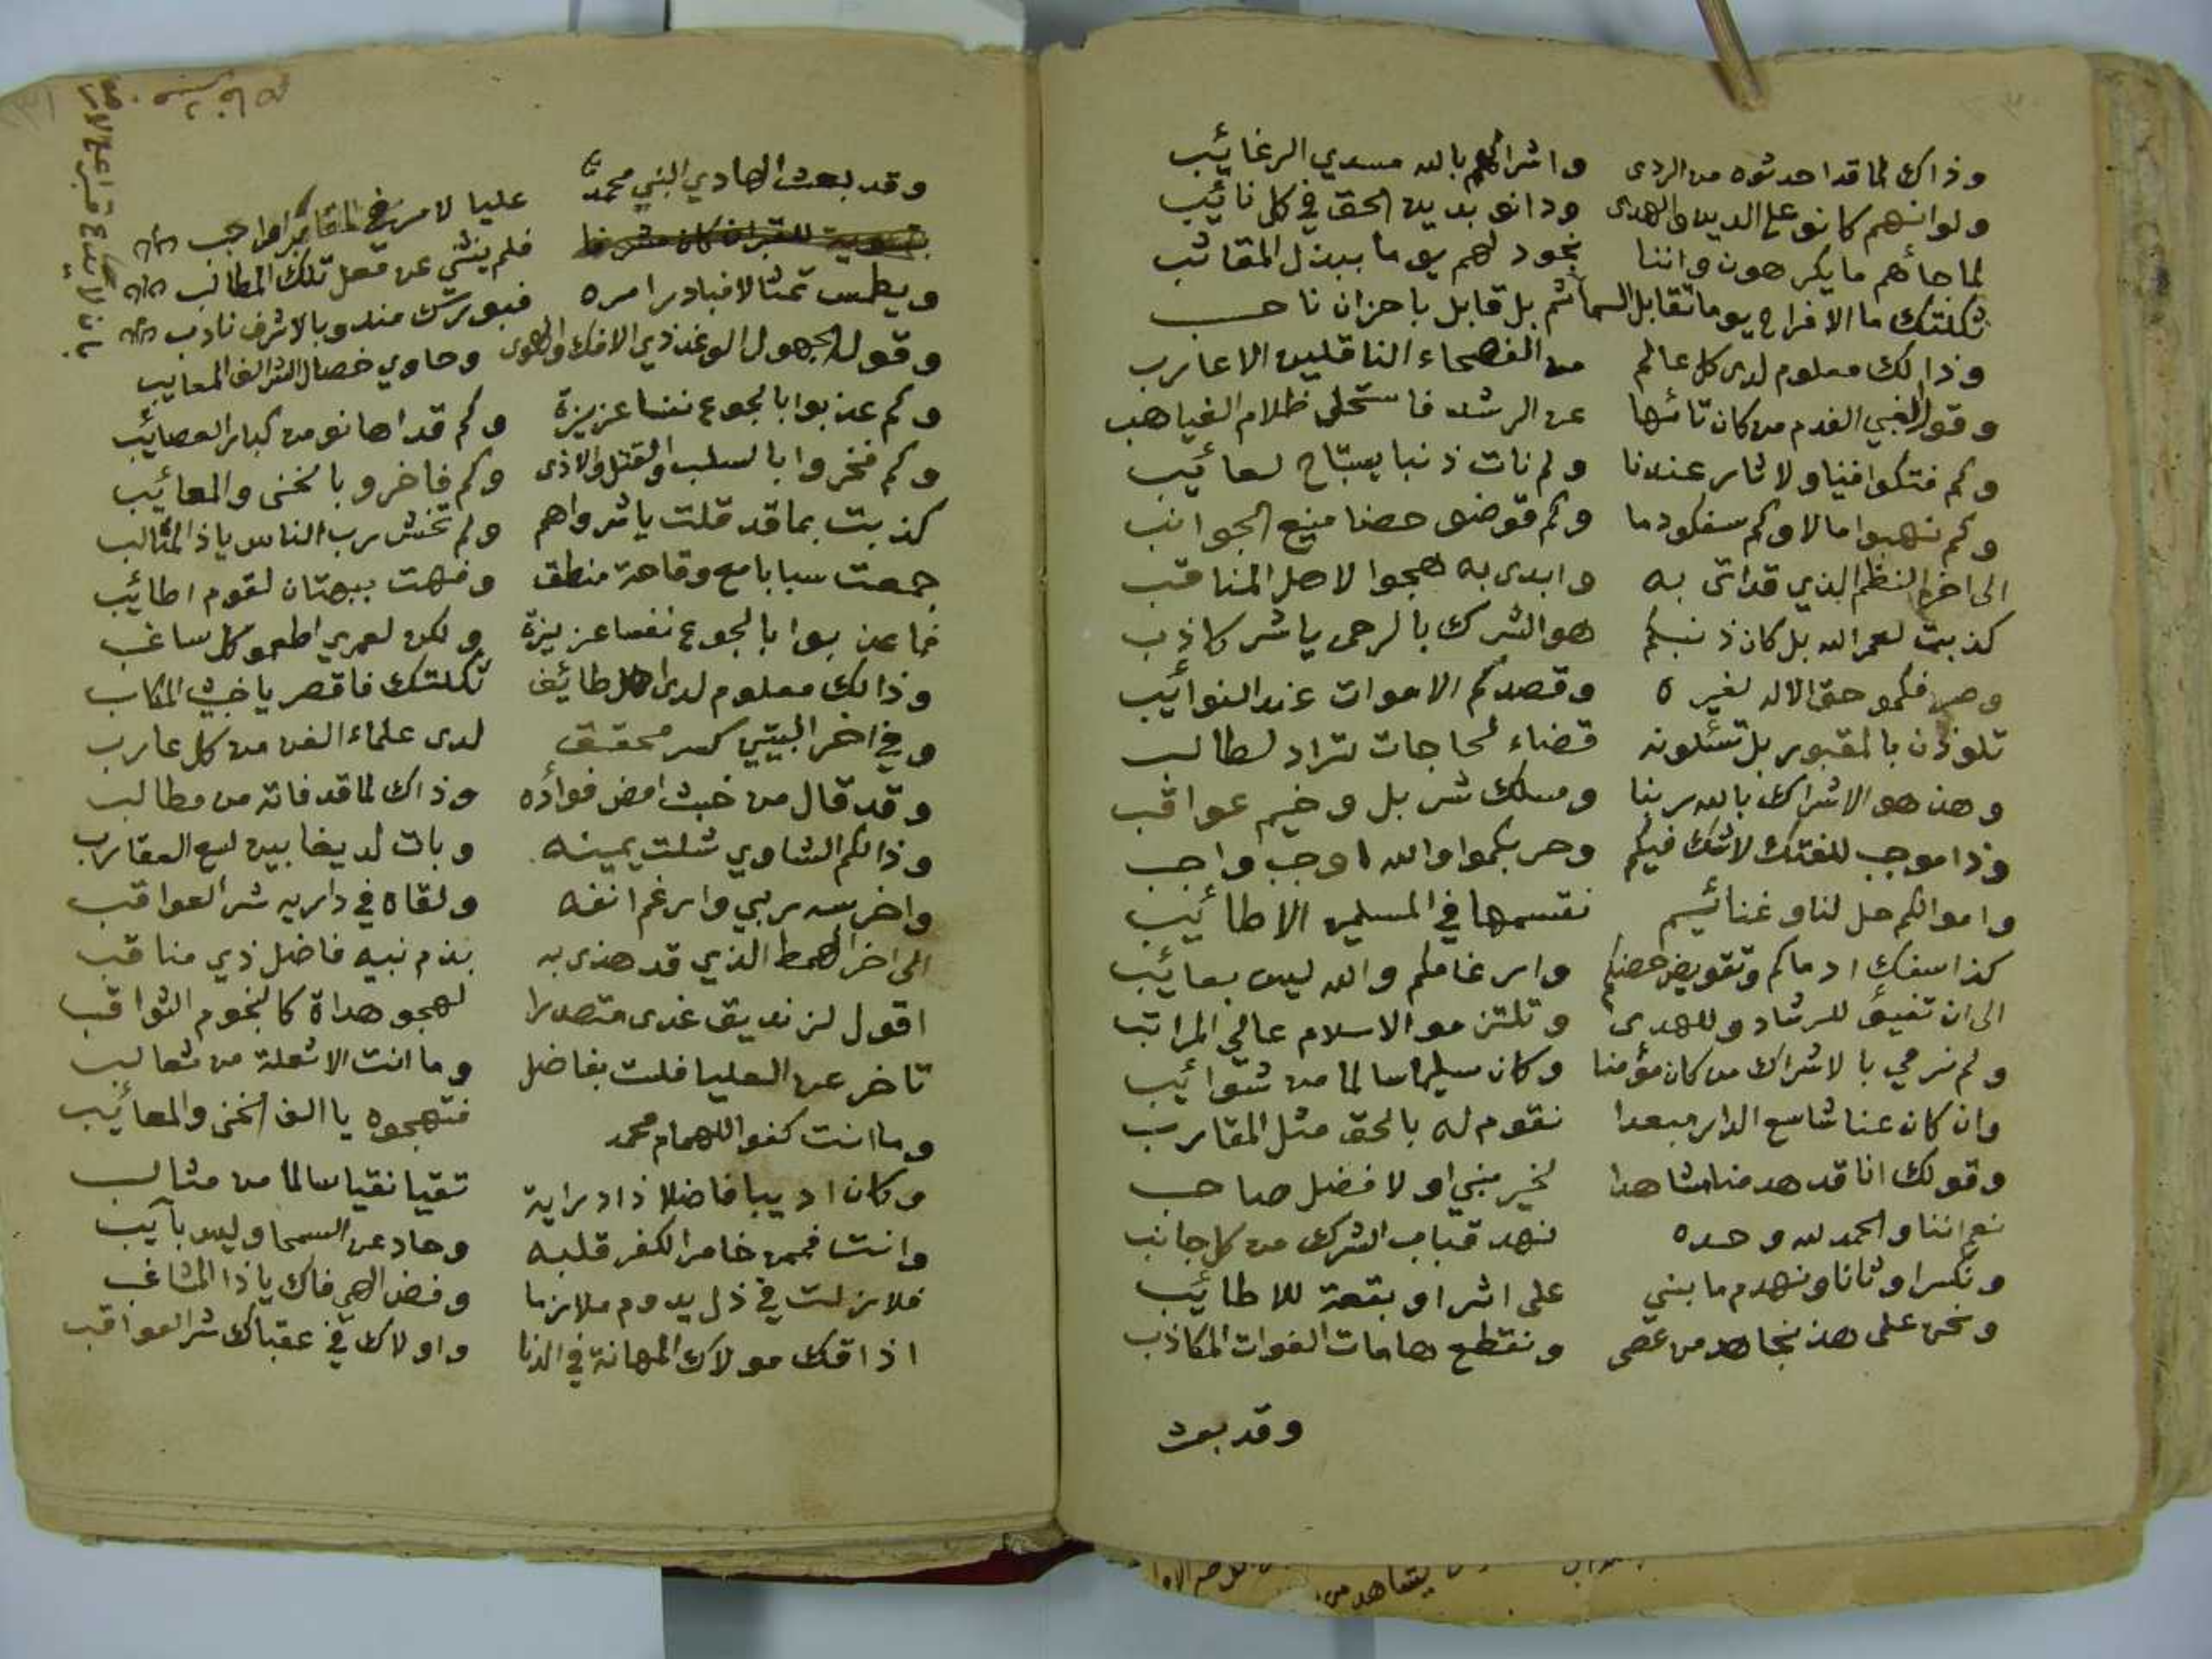 وذاك لما قد احدثوه من الردى واشراكهم بالله مسدي الرغائب
ولو انهم كانو على الدين والهدى ودانو بدين الحق في كل نائب
لما جائهم ما يكرهون واننا نجود لهم يوما ببذل المقانب
ثكلتك ما الافراح يوما تقابل الشمائم بل قابل باحزان ناحب
وذالك معلوم لدى كل عالم من الفصحاء الناقلين الاعارب
وقول الغبي الفدم من كان تائها عن الرشد فاستحلى ظلام الغياهب
وكم فتكوا فينا ولا ثار عندنا ولم نات ذنبا يستباح لعائب
وكم نهبوا مالا وكم سفكو دما وكم قوضو حصنا منيع الجوانب
الى اخر النظم الذي قد اتى به وابدى به هجوا لاهل المناقب
كذبت لعمر الله بل كان ذنبكم هو الشرك بالرحمن يا شر كاذب
وصرفكمو حق الاله لغيره وقصدكم الاموات عند النوائب
تلوذن بالمقبور بل تسئلونه قضاء لحاجات تراد لطالب
وهذ هو الاشراك بالله ربنا ومسلك شر بل وخيم عواقب
وذا موجب للفتك لا شك فيكم وحربكموا والله اوجب واجب
واموالكم حل لنا وغنائيم نقسمها في المسلمين الاطائيب
كذا سفك ادماكم وتقويض حصنكم وارغامكم والله ليس بعائيب
الى ان تفيئو للرشاد وللهدى وتلتزمو الاسلام عالي المراتب
ولم نرمي بالاشراك من كان مؤمنا وكان سليما سالما من شوائيب
وان كان عنا شاسع الدار مبعدا نقوم له بالحق مثل المقارب
وقولك انا قد هدمنا مشاهدا لخير نبي او لافضل صاحب
نعم اننا والحمد لله وحده نهد قباب الشرك من كل جانب
ونكسر اوثانا ونهدم ما بني على اثر او بقعة للاطائيب
ونحن على هذ نجاهد من عصى ونقطع هامات الغوات المكاذب
وقد بعث
وقد بعث الهادي النبي محمد عليا لامر في المقابر واجب
بتسوية للقبر ان كان مشرفا
ويطمس تمثالا فبادر امره فلم ينثني عن فعل تلك المطالب
وقوله الجهول الوغد ذي الافك والهوى وحاوي خصال الشر الف المعايب
وكم عذبوا بالجوع نفسا عزيزة وكم قد اهانو من كبار العصائب
وكم فخروا بالسلب والقتل والاذى وكم فاخرو بالخنى والمعائيب
كذبت بما قد قلت يا شر واهم ولم تخش رب الناس يا ذ المثالب
جمعت سبابا مع وقاحة منطق وفهت ببهتان لقوم اطائيب
فما عذبوا بالجوع نفسا عزيزة ولكن لعمري اطعمو كل ساغب
وذالك معلوم لدى كل طائف ثكلتك فاقصر يا خبيث المكاسب
وفي اخر البيتين كسر محقق لدى علماء الفن من كل عارب
وقد قال من خبث امض فوأده وذاك لما قد فاته من مطالب
وذالكم الشاوي شلت يمينه وبات لديغا بين لسع العقارب
واخرسه ربي وارغم انفه ولقاه في داريه شر العواقب
الى اخر الهمط الذي قد هذى به بذم نبيه فاضل ذي مناقب
اقول لزنديق غدى متصدرا لهجو هداة كالنجوم الثواقب
تاخر عن العليا فلست بفاضل وما انت الا ثعلة من ثعالب
وما انت كفوا للهمام محمد فتهجوه يا الف الخنى والمعائيب
وكان اديبا فاضلا ذا دراية تقيا نقيا سالما من مثالب
وانت فممن خامر الكفر قلبه وحاد عن السمحا وليس بآيب
فلا زلت في ذل يدوم ملازما وفض الهي فاك يا ذا المشاغب
اذاقك مولاك المهانة في الدنا واولاك في عقباك شر العواقب